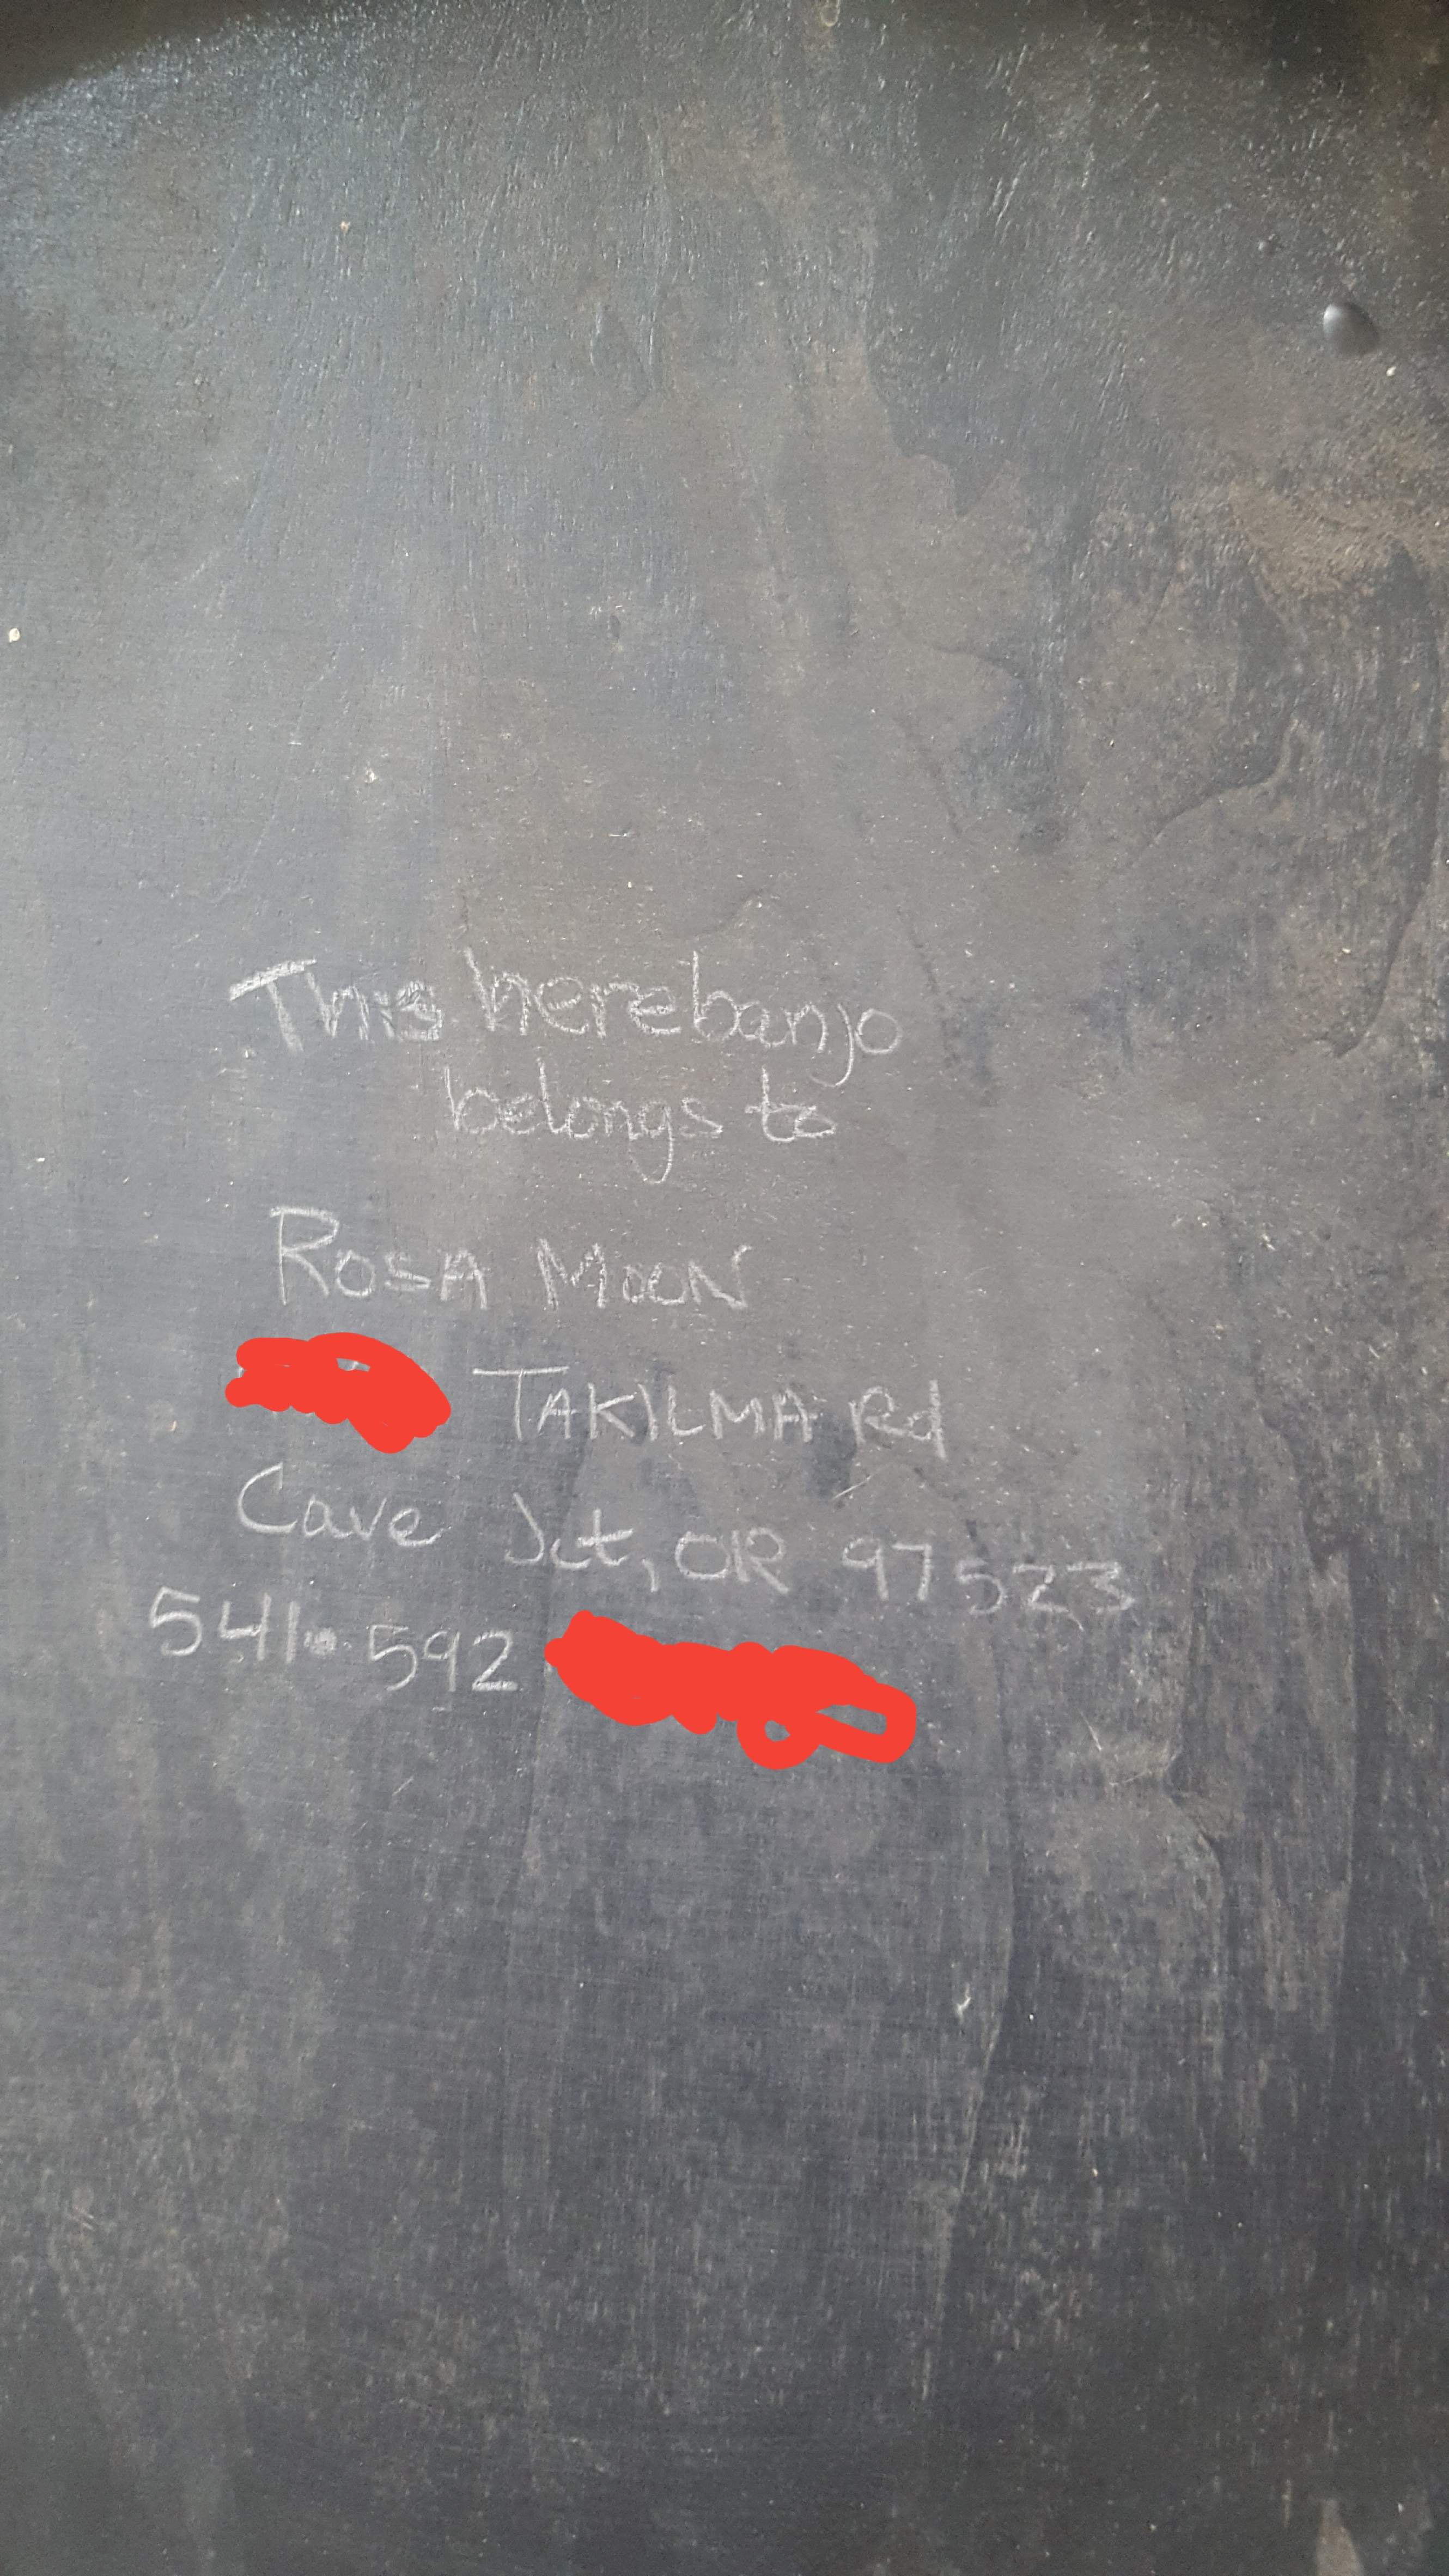 This here banjo
belongs to
ROSA MOON
TAKILMA Rd
Cave Jct, OR 97523
541-592